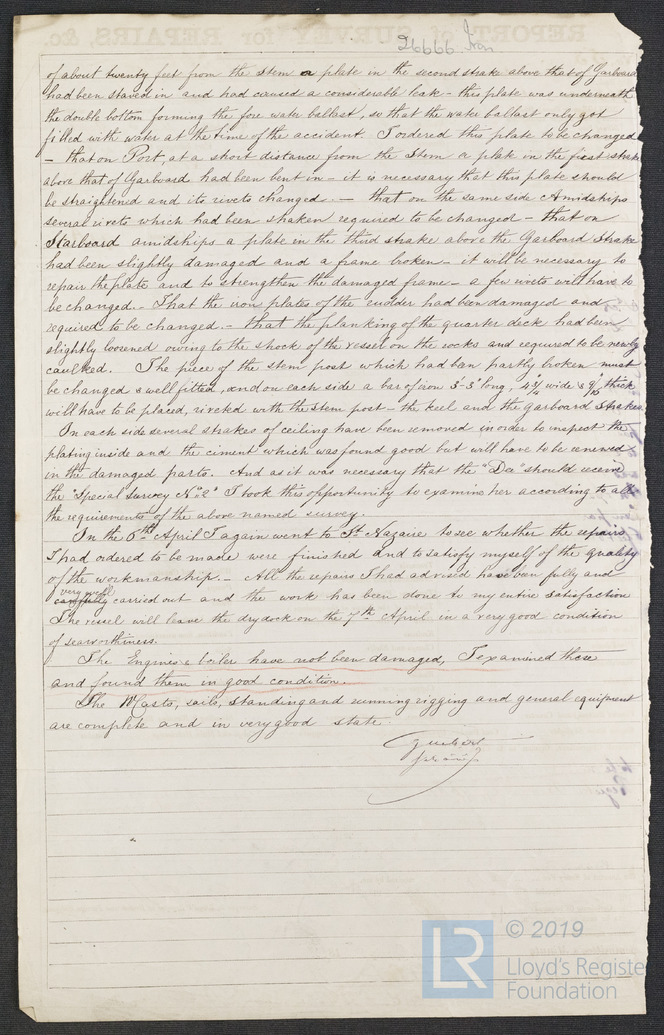 26666 Iron
of about twenty feet from the stem a plate in the second strake above that of Garboard
had been staved in and had caused a considerable leak - this plate was underneath
the double bottom forming the fore water ballast, so that the water ballast only got
filled with water at the time of the accident. I ordered this plate to be changed
- that on Port, at a short distance from the stem a plate in the first strake
above that of Garboard had been bent in - it is necessary that this plate should
be straightened and its rivets changed. - that on the same side Amidships
several rivets which had been shaken required to be changed - that on
Starboard amidships a plate in the third strake above the Garboard Strake
had been slightly damaged and a frame broken - it will be necessary to
repair the plate and to strengthen the damaged frame - a few rivets will have to
be changed. - That the iron plates of the rudder had been damaged and
required to be changed. - that the planking of the quarter deck had been
slightly loosened owing to the shock of the vessel on the rocks and required to be newly
caulked. The piece of the stem post which had ban partly broken must
be changed & well fitted, and on each side a bar of iron 3'-3" long, 4"¼ wide & 9/16 thick
will have to be placed, riveted with the stem post - the keel and the Garboard Strakes
In each side several strakes of ceiling have been removed in order to inspect the
plating inside and the ciment which was found good but will have to be renewed
in the damaged parts. And as it was necessary that the "Dee" should receive
the "Special survey No 2" I took this opportunity to examine her according to all
the requirements of the above named survey.
On the 6th April I again went to St Nazaire to see whether the repairs
I had ordered to be made were finished and to satisfy myself of the quality
of the workmanship. - All the repairs I had advised have been fully and
very well
carefully carried out and the work has been done to my entire satisfaction
The vessel will leave the dry dock on the 7th April in a very good condition
of seaworthiness.
The Engines & boiler have not been damaged, I examined these
and found them in good condition.
The Masts, sails, standing and running rigging and general equipment
are complete and in very good state
© 2019
LR
Lloyd's Registe
Foundation